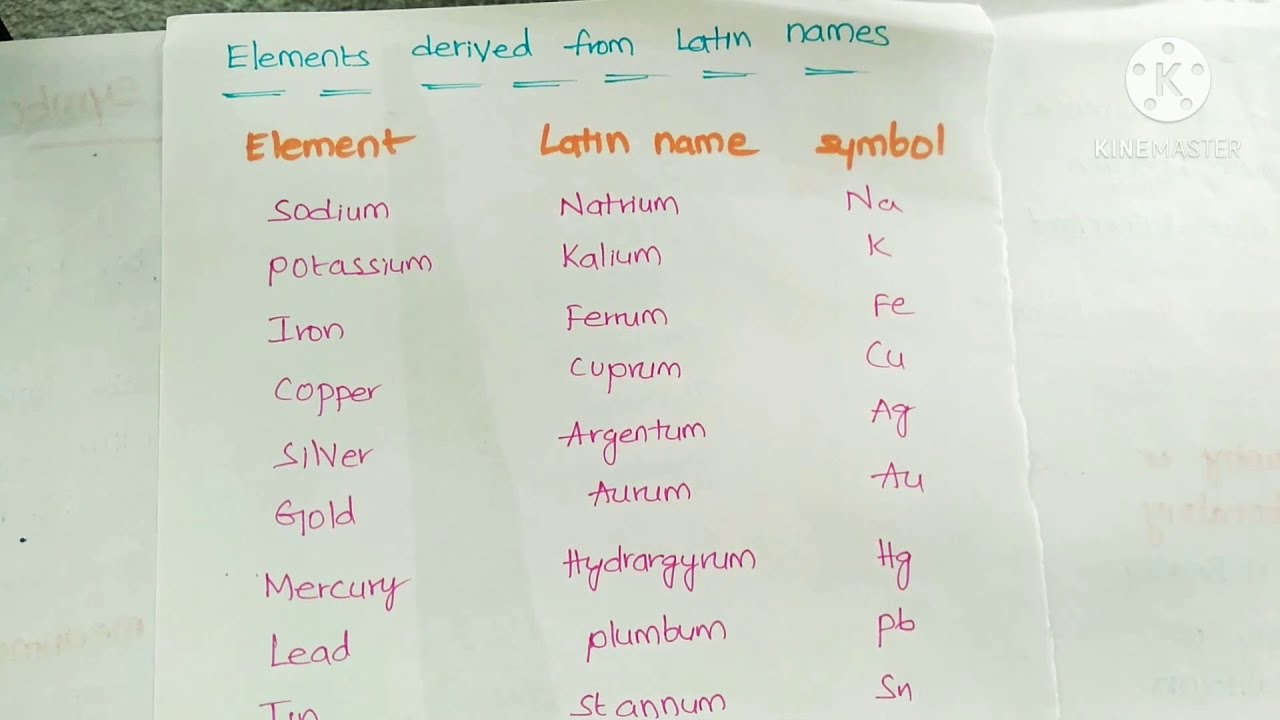 Elements derived from Latin names
K
KINEMASTER
Element Latin name symbol
Sodium Natrium Na
Potassium Kalium K
Iron Ferrum Fe
Copper Cuprum Cu
Silver Argentum Ag
Gold Aurum Au
Mercury Hydrargyrum Hg
Lead plumbum pb
Tin Stannum Sn